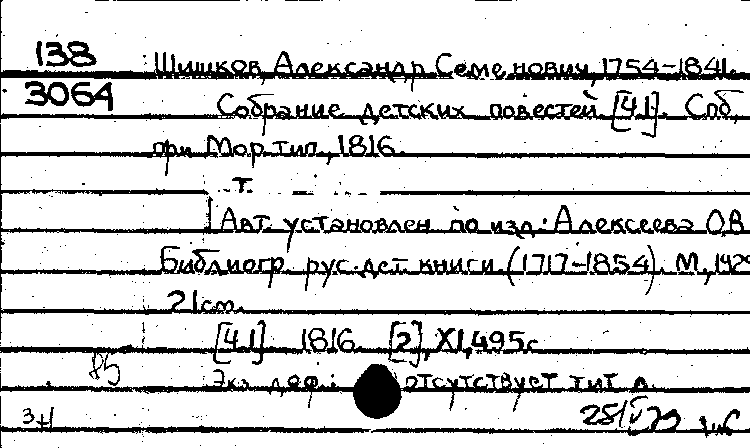 138 Шишков, Александр Семенович, 1754-1841.
3064 Собрание детских повестей, [Ч.1]. Спб,
при Мор. тип., 1816.
т.
Авт. установлен по изд.: Алексеева О.В.
Библиогр. рус. дет. книги (1717-1854). М., 1929
21 см.
[Ч.1] 1816. [2], XI, 495 с.
85
Экз. деф.: отсутствует тит. л.
3
28/V 79